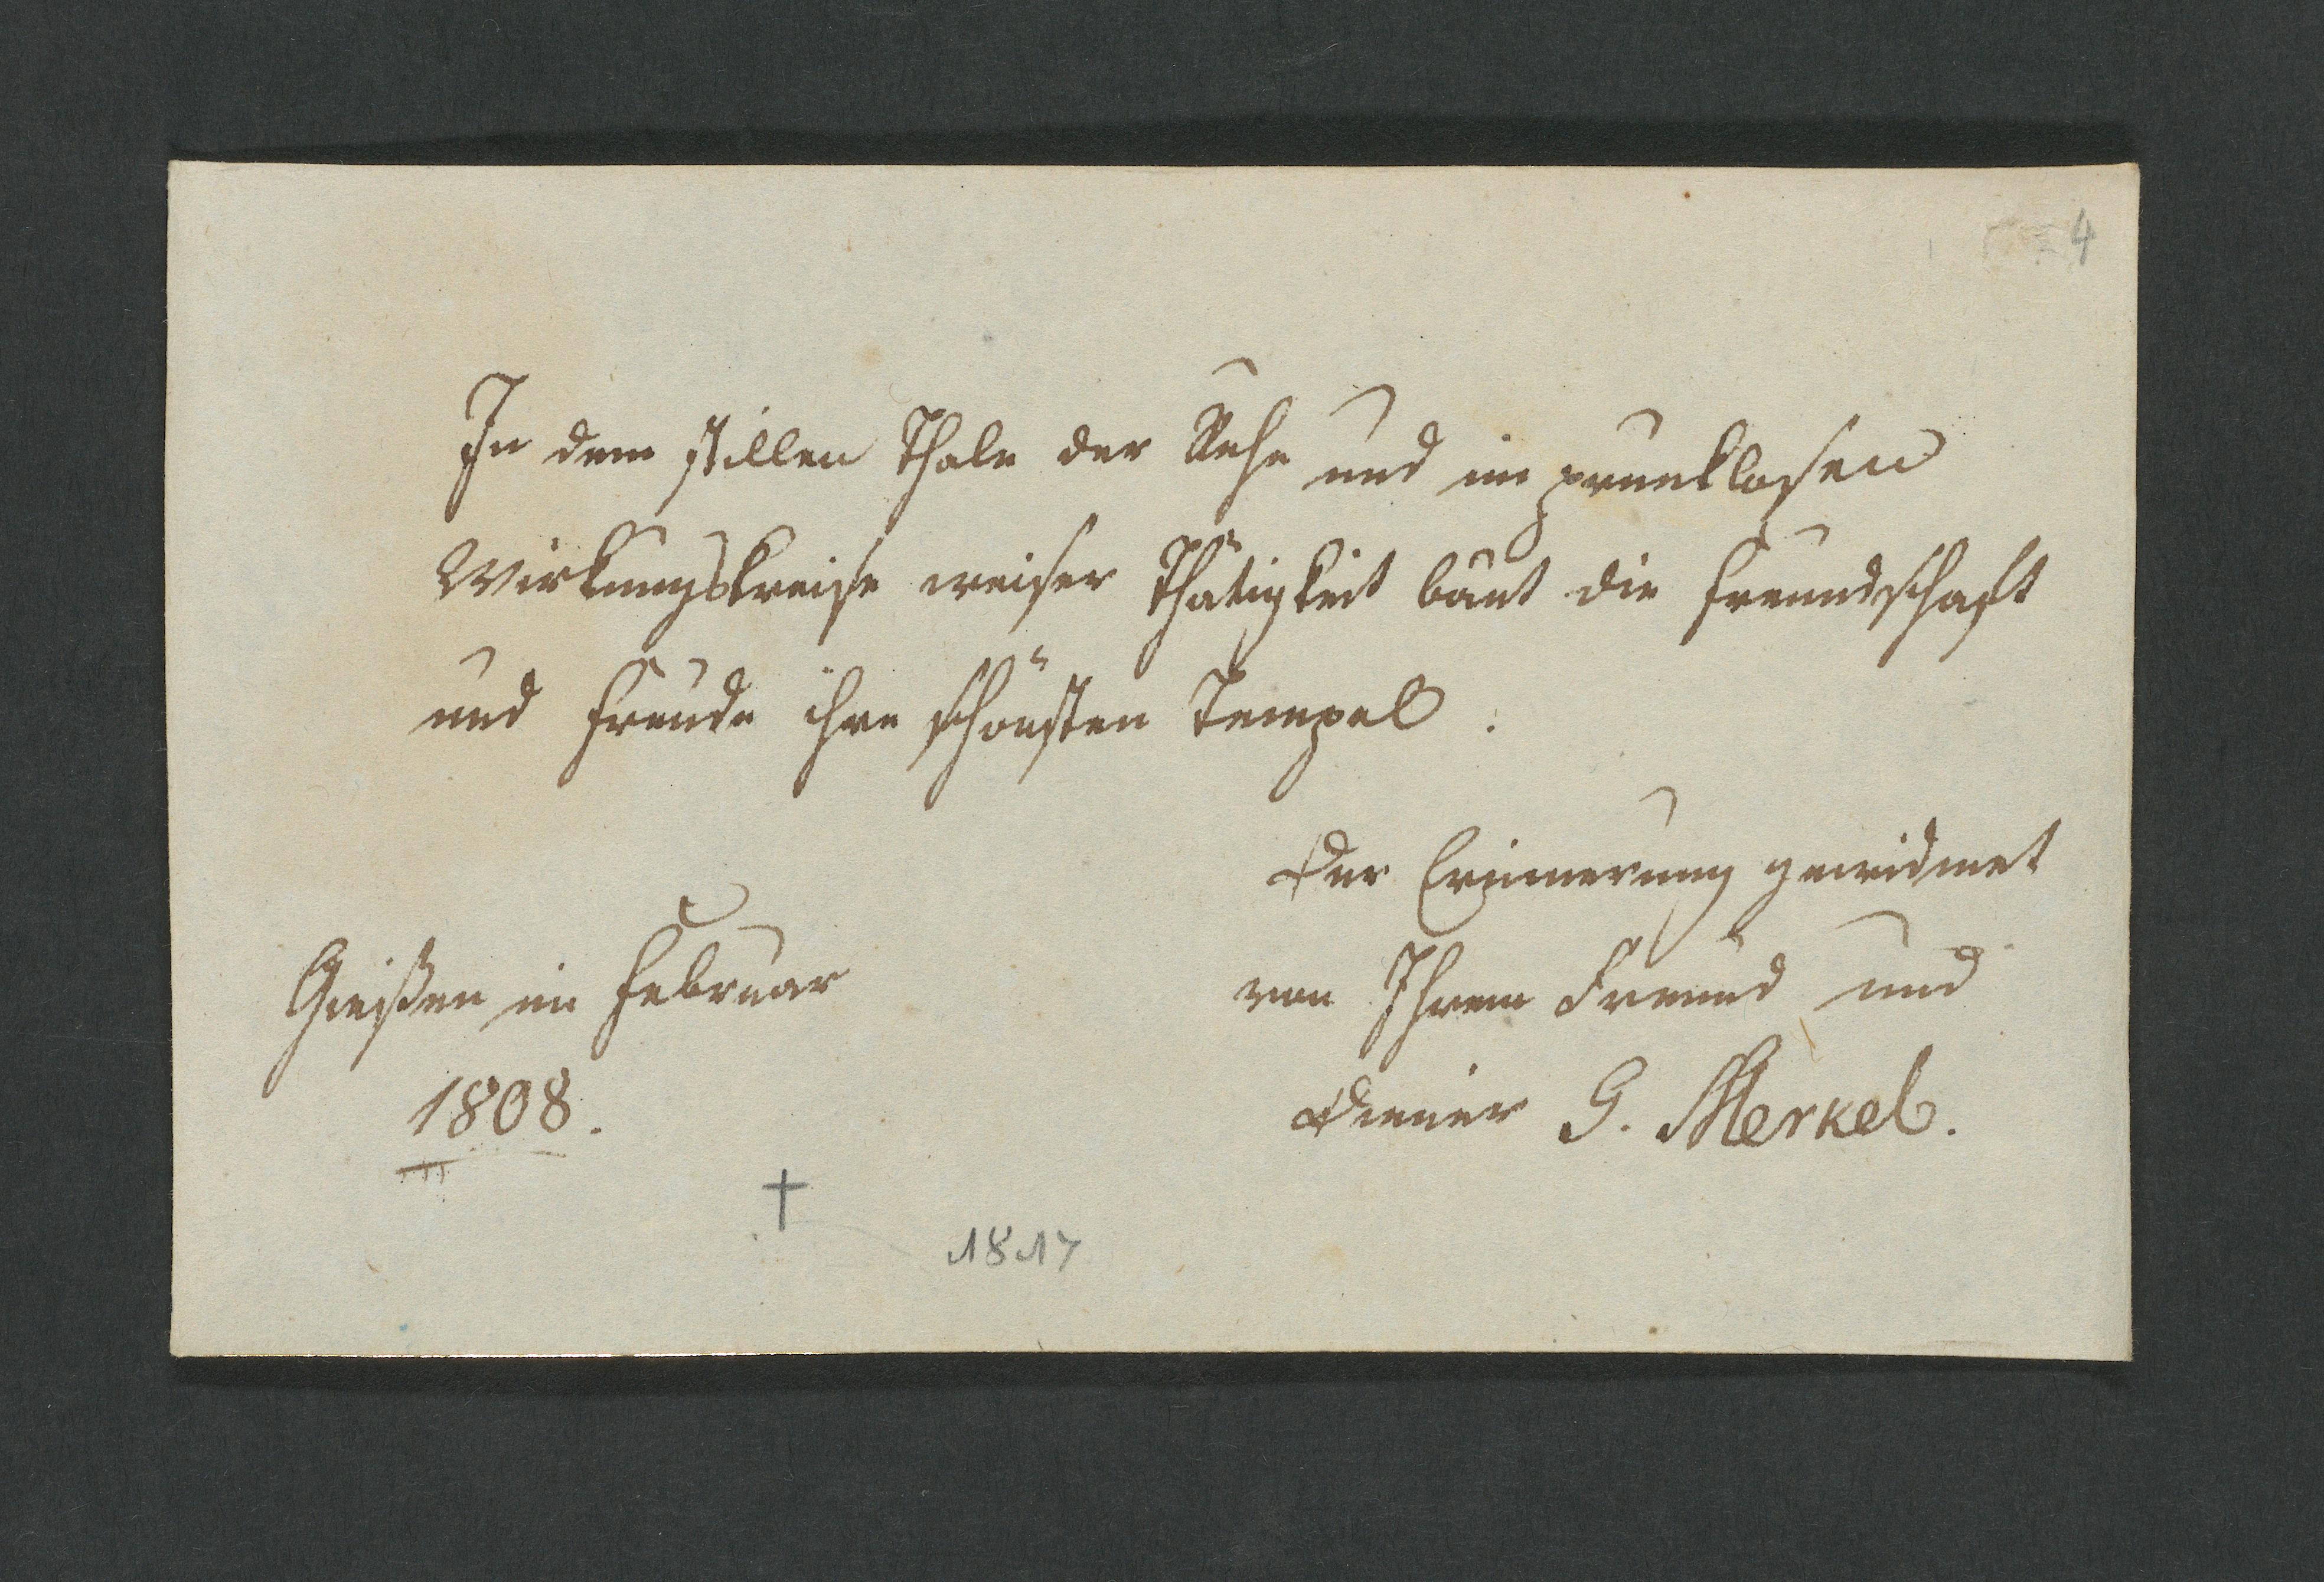 4
In dem stillen Thale der Ruhe und im prunklosen
Wirkungskreise weiser Thätigkeit baut die Freundschaft
und Freude ihre schönsten Tempel.
Der Erinnerung gewidmet
von Ihrem Freund und
Diener G. Merkel.
Gießen im Februar
1808.
†
1817